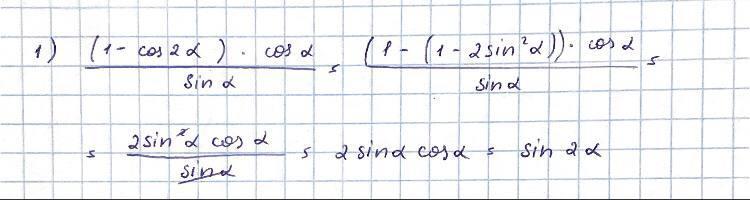 1) ((1 - cos2α) · cosα)/(sinα) = ((1 - (1 - 2sin²α)) · cosα)/(sinα) =
= (2sin²α cosα)/(sinα) = 2sinα cosα = sin2α